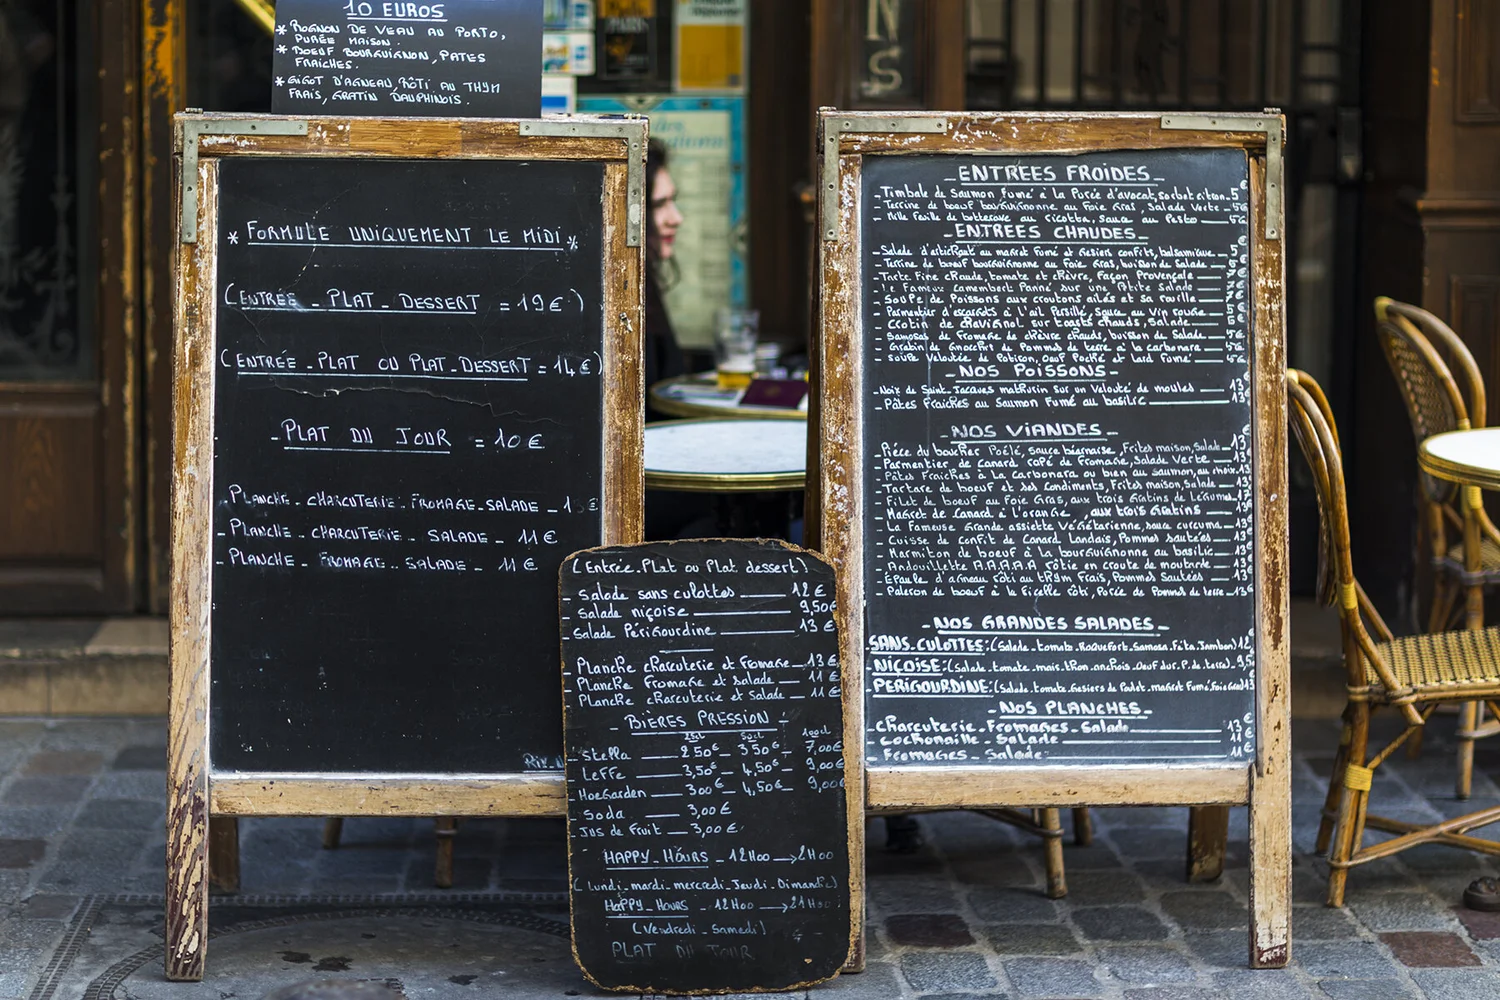 10 EUROS
* ROGNON DE VEAU AU PORTO,
PURÉE MAISON.
* BOEUF BOURGUIGNON, PATES
FRAICHES.
* GIGOT D'AGNEAU, RÔTI AU THYM
FRAIS, GRATIN DAUPHINOIS.
* FORMULE UNIQUEMENT LE MIDI *
(ENTRÉE - PLAT - DESSERT = 19€)
(ENTRÉE - PLAT OU PLAT - DESSERT = 14€)
- PLAT DU JOUR = 10€
- PLANCHE - CHARCUTERIE - FROMAGE - SALADE - 1 €
- PLANCHE - CHARCUTERIE - SALADE - 11€
- PLANCHE - FROMAGE - SALADE - 11€
(Entrée. Plat ou Plat dessert)
- Salade sans culottes — 12€
- Salade niçoise — 9,50€
- Salade Périgourdine — 13€
- Planche charcuterie et fromage — 13€
- Planche Fromage et salade — 11€
- Planche charcuterie et salade — 11€
- BIÈRES PRESSION -
25cl 50cl 100cl
- Stella — 2,50€ — 3,50€ — 7,00€
- Leffe — 3,50€ — 4,50€ — 9,00€
- Hoegarden — 3,00€ — 4,50€ — 9,00€
- Soda — 3,00€
- Jus de fruit — 3,00€
HAPPY - HOURS - 12H00 → 2H00
(Lundi - mardi - mercredi - Jeudi - Dimanche)
HAPPY - HOURS - 12H00 → 21H00
(Vendredi - Samedi)
PLAT DU JOUR
- ENTREES FROIDES -
- Timbale de Saumon Fumé à la Purée d'avocat, sorbet citron - 5€
- Terrine de boeuf bourguignonne au Foie Gras, Salade Verte - 5€
- Mille feuille de betterave au ricotta, sauce au Pesto — 5€
- ENTREES CHAUDES -
- Salade d'artichaut au magret fumé et gesiers confits, balsamique — 5€
- Terrine de boeuf bourguignonne au Foie Gras, buisson de Salade —
- Tarte Fine chaude, tomate et chèvre, Façon Provençale —
- Le Fameux Camembert Panné, sur une Petite Salade —
- Soupe de Poissons aux croutons ailés et sa rouille —
- Parmentier d'escargots à l'ail Persillé, Sauce au Vin rouge —
- Crotin de chavignol sur toasts chauds, Salade —
- Samosas de Fromage de chèvre chauds, buisson de Salade —
- Gratin de Gnocchi de Pommes de terre à la carbonara —
- Soupe Veloutée de Potiron, oeuf Poché et Lard Fumé —
- NOS POISSONS -
- Noix de Saint-Jacques mathurin sur un Velouté de moules — 13€
- Pâtes Fraiches au Saumon Fumé au basilic — 13€
- NOS VIANDES -
- Pièce du boucher Poélé, sauce béarnaise, Frites maison, Salade - 13€
- Parmentier de Canard rapé de Fromage, Salade Verte - 13€
- Pâtes Fraiches à la Carbonara ou bien au Saumon, au choix. 13€
- Tartare de boeuf et ses Condiments, Frites maison, Salade - 13€
- Filet de boeuf au Foie Gras, aux trois Gratins de Légumes - 17€
- Magret de Canard à l'orange, aux trois Gratins — 13€
- La Fameuse Grande assiette Végétarienne, sauce curcuma - 13€
- Cuisse de confit de Canard Landais, Pommes sautées — 13€
- Marmiton de boeuf à la bourguignonne au basilic — 13€
- Andouillette A.A.A.A.A rôtie en croute de moutarde — 13€
- Épaule d'agneau rôti au thym Frais, Pommes Sautées — 13€
- Paleron de boeuf à la Ficelle rôti, Purée de Pommes de terre - 13€
- NOS GRANDES SALADES -
SANS. CULOTTES: (Salade. tomate. Roquefort. Samosa. Féta. Jambon) 12€
NIÇOISE: (Salade. tomate. mais. thon. anchois. Oeuf dur. P. de terre). 9,5
PERIGOURDINE: (Salade. tomate. Gesiers de Poulet. magret Fumé. Foie Gras) 13
- NOS PLANCHES -
- Charcuterie - Fromages - Salade — 13€
- Cochonaille - Salade — 11€
- Fromages - Salade — 11€